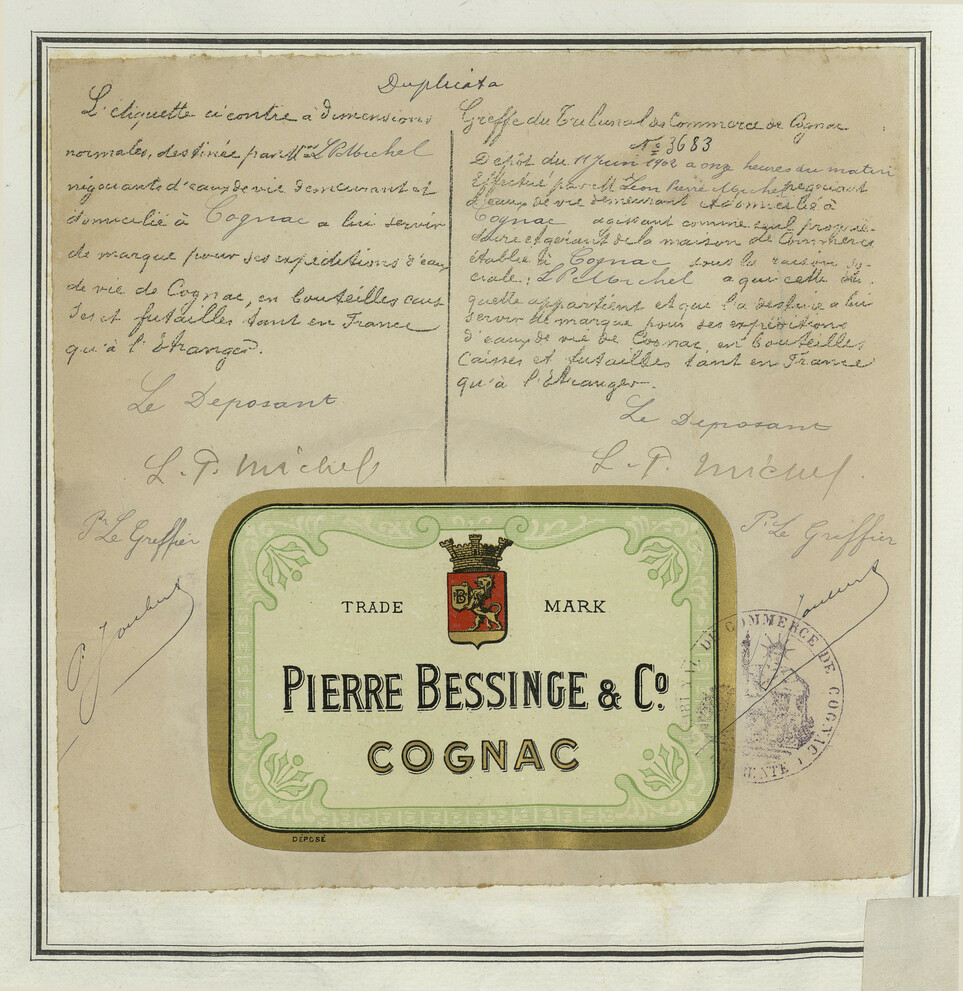 Duplicata
L'étiquette ci contre à dimensions
normales, destinée par Mr L P Michel
négociant d'eaux de vie demeurant et
domicilié à Cognac a lui servir
de marque pour ses expeditions d'eaux
de vie de Cognac, en bouteilles cais
ses et futailles tant en France
qu'à l'Etranger.
Le Deposant
L. P. Michel
Pr Le Greffier
P. Joubert
Greffe du Tribunal de Commerce de Cognac
No 3683
Dépôt du 11 Juin 1902 a onze heures du matin
Effectué par M Léon Pierre Michel negociant
d'eaux de vie demeurant et domicilié à
Cognac agissant comme seul proprié-
taire et gérant de la maison de Commerce
établie à Cognac sous la raison so-
ciale: L P Michel a qui cette éti-
quette appartient et qui l'a destinée a lui
servir de marque pour ses expéditions
d'eaux de vie de Cognac, en bouteilles
caisses et futailles tant en France
qu'à l'Etranger.
Le Deposant
L. P. Michel
Pr Le Greffier
Joubert
TRADE MARK
PIERRE BESSINGE & Co.
COGNAC
DÉPOSÉ
DU COMMERCE DE COGNAC